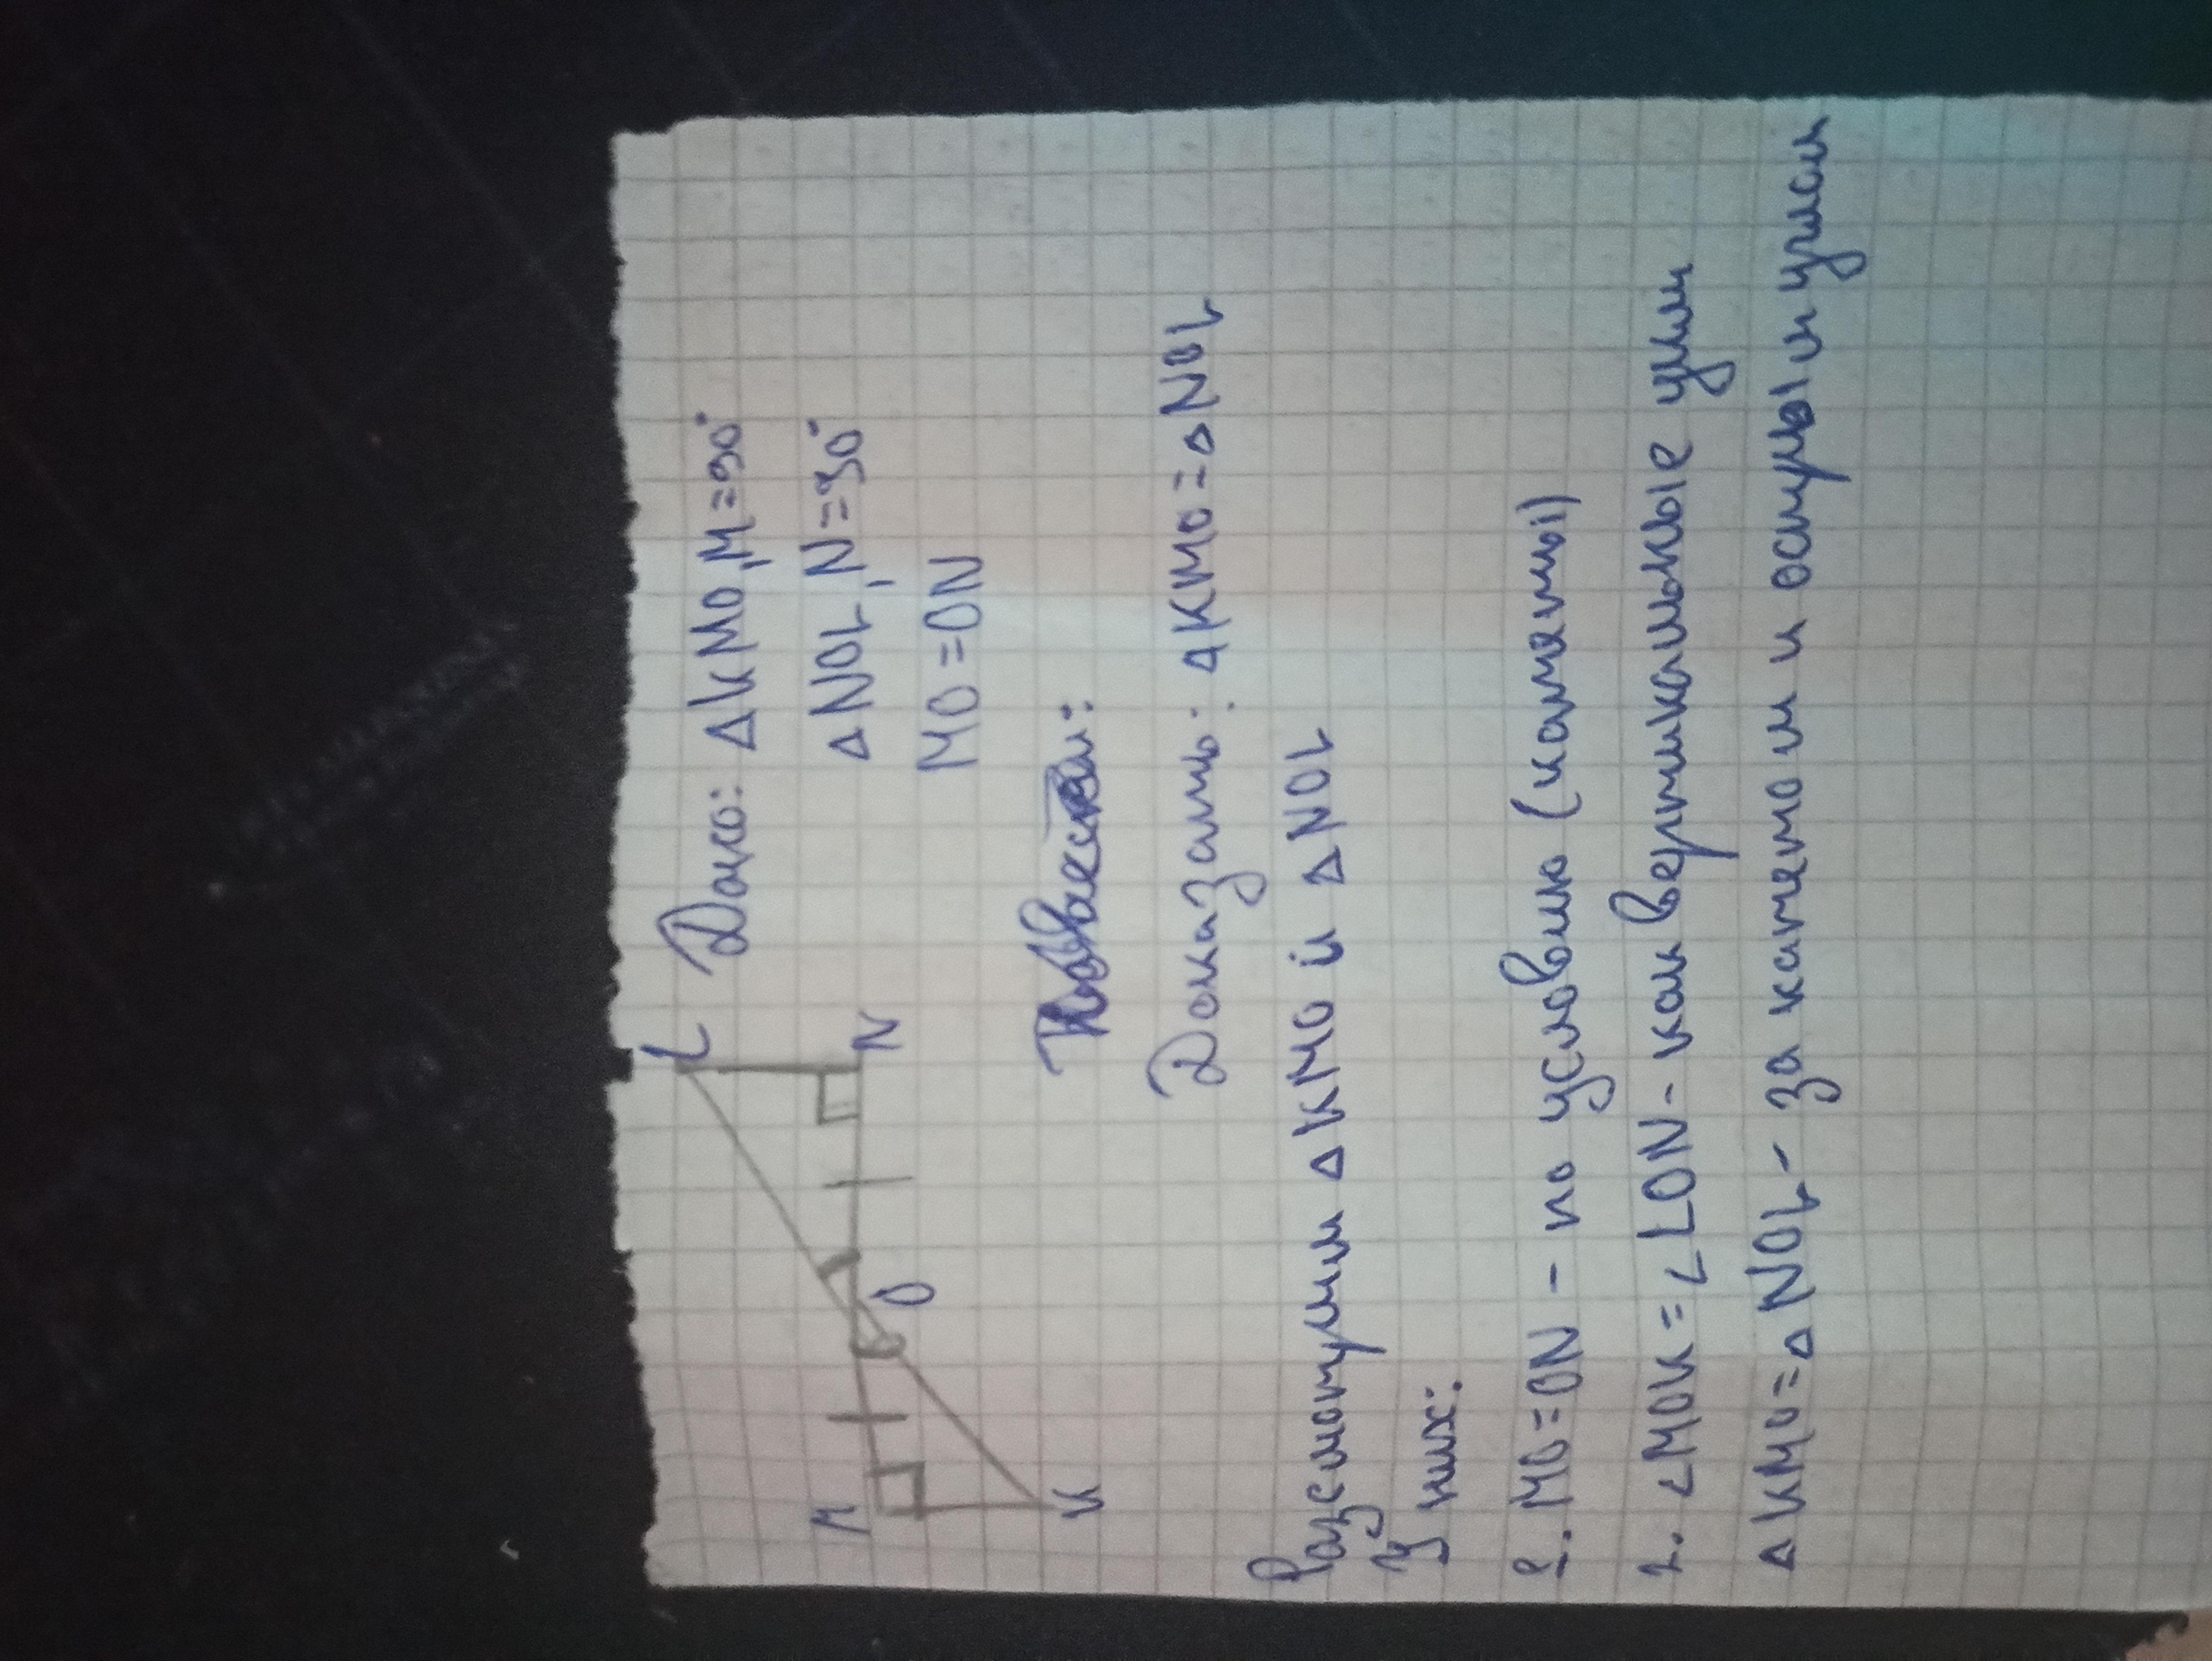 L
M
N
O
K
Дано: ΔKMO, M=90°
ΔNOL, N=90°
MO=ON
Доказать: ΔKMO=ΔNOL
Разсмотрим ΔKMO и ΔNOL
У них:
1. MO=ON - по условию (катеты)
2. ∠MOK=∠LON - как вертикальные углы
ΔKMO=ΔNOL - за катетом и острым углом